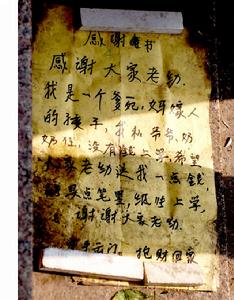 感谢书
感谢大家老幼.
我是一个爹死,妈嫁人
的孩子,我和爷爷,奶
奶住,没有钱上学,希望
大家老幼送我一点钱,
买点笔墨,继续上学,
谢谢大家老幼.
门.抱财回家